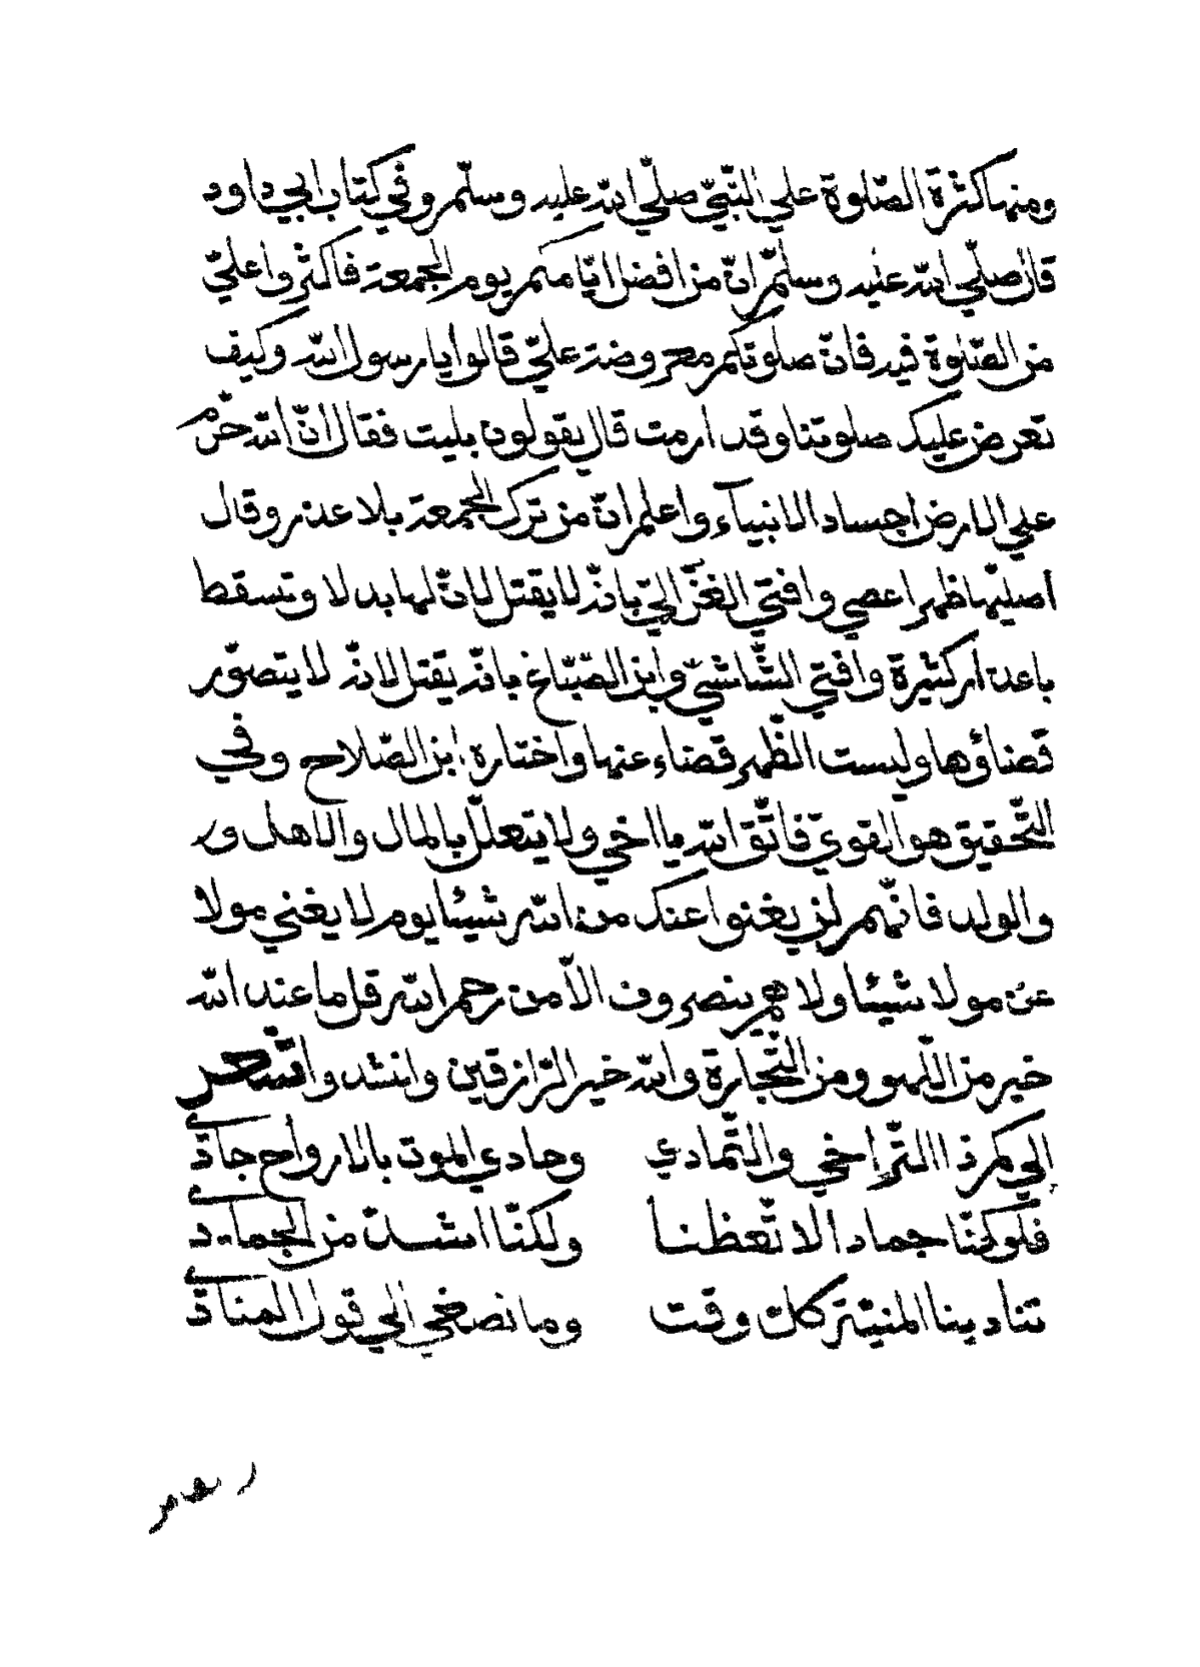 ومنها كثرة الصّلوة علي النّبيّ صلّي الله عليه وسلّم وفي كتاب ابي داود
قال صلّي الله عليه وسلّم انّ من افضل ايّامكم يوم الجمعة فاكثروا عليّ
من الصّلوة فيه فانّ صلوتكم معروضة عليّ قالوا يا رسول الله وكيف
تعرض عليك صلوتنا وقد ارمت قال يقولون بليت فقال انّ الله حرّم
علي الارض اجساد الانبيآء واعلم انّ من ترك الجمعة بلا عذر وقال
اصليّها ظهرا عصي وافتي الغزّاليّ بانّه لا يقتل لانّ لها بدلا وتسقط
باعذار كثيرة وافتي الشّاشيّ وابن الصّبّاغ بانّه يقتل لانّه لا يتصوّر
قضاؤها وليست الظّهر قضاء عنها واختاره ابن الصّلاح وفي
التّحقيق هو القويّ فاتّق الله يا اخي ولا يتعلّل بالمال والاهل ور
والولد فانّهم لن يغنوا عنك من الله شيئا يوم لا يغني مولا
عن مولا شيئا ولا هم ينصروف الاّ من رحم الله قل ما عند الله
خير من اللّهو ومن التّجارة والله خير الرّازقين وانشد وا شحر
الي كم ذا التّراخي والتّمادي وحادي الموت بالارواح جادّي
فلو كنّا جمادا لا تّعظنا ولكنّا اشدّ من الجماد
تنادينا المنيّة كلّ وقت وما نصغي الي قول المنادي